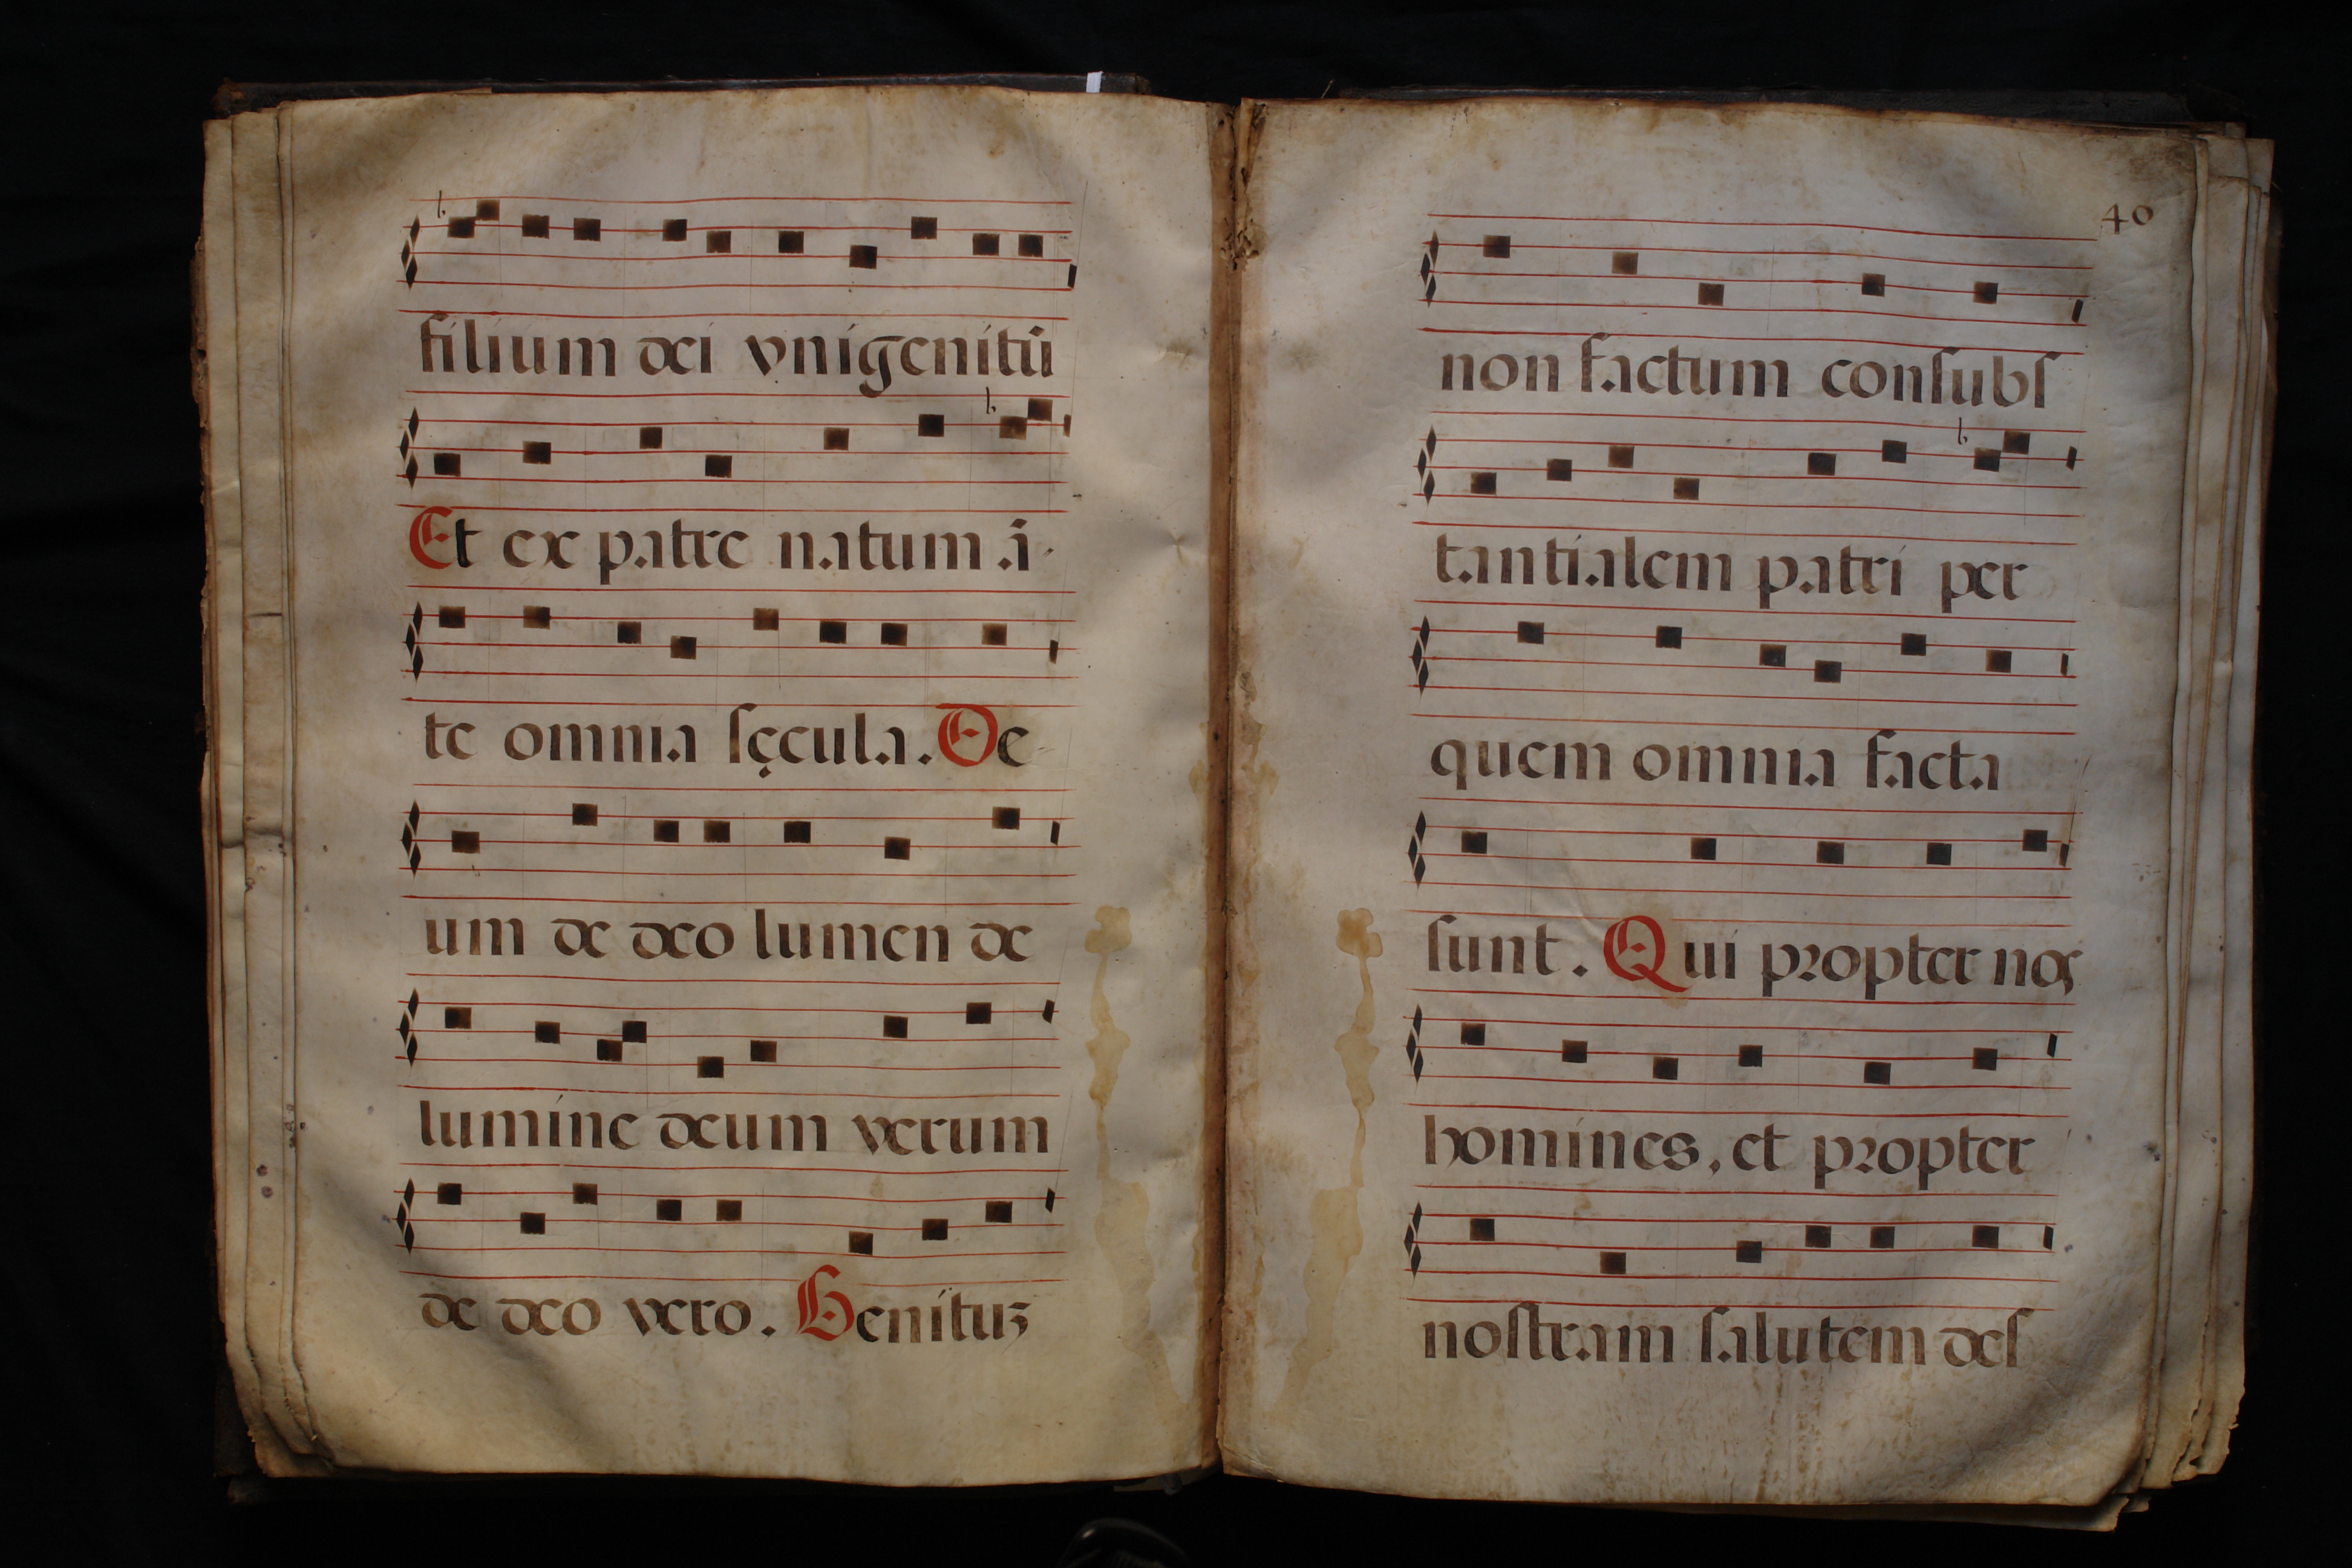 filium dei vnigenitũ
Et ex patre natum ã
te omnia ſęcula. De
um de deo lumen de
lumine deum verum
de deo vero. Genituʒ
40
non factum conſubſ
tantialem patri per
quem omnia facta
ſunt. Qui propter nos
homines, et propter
noſtram ſalutem deſ